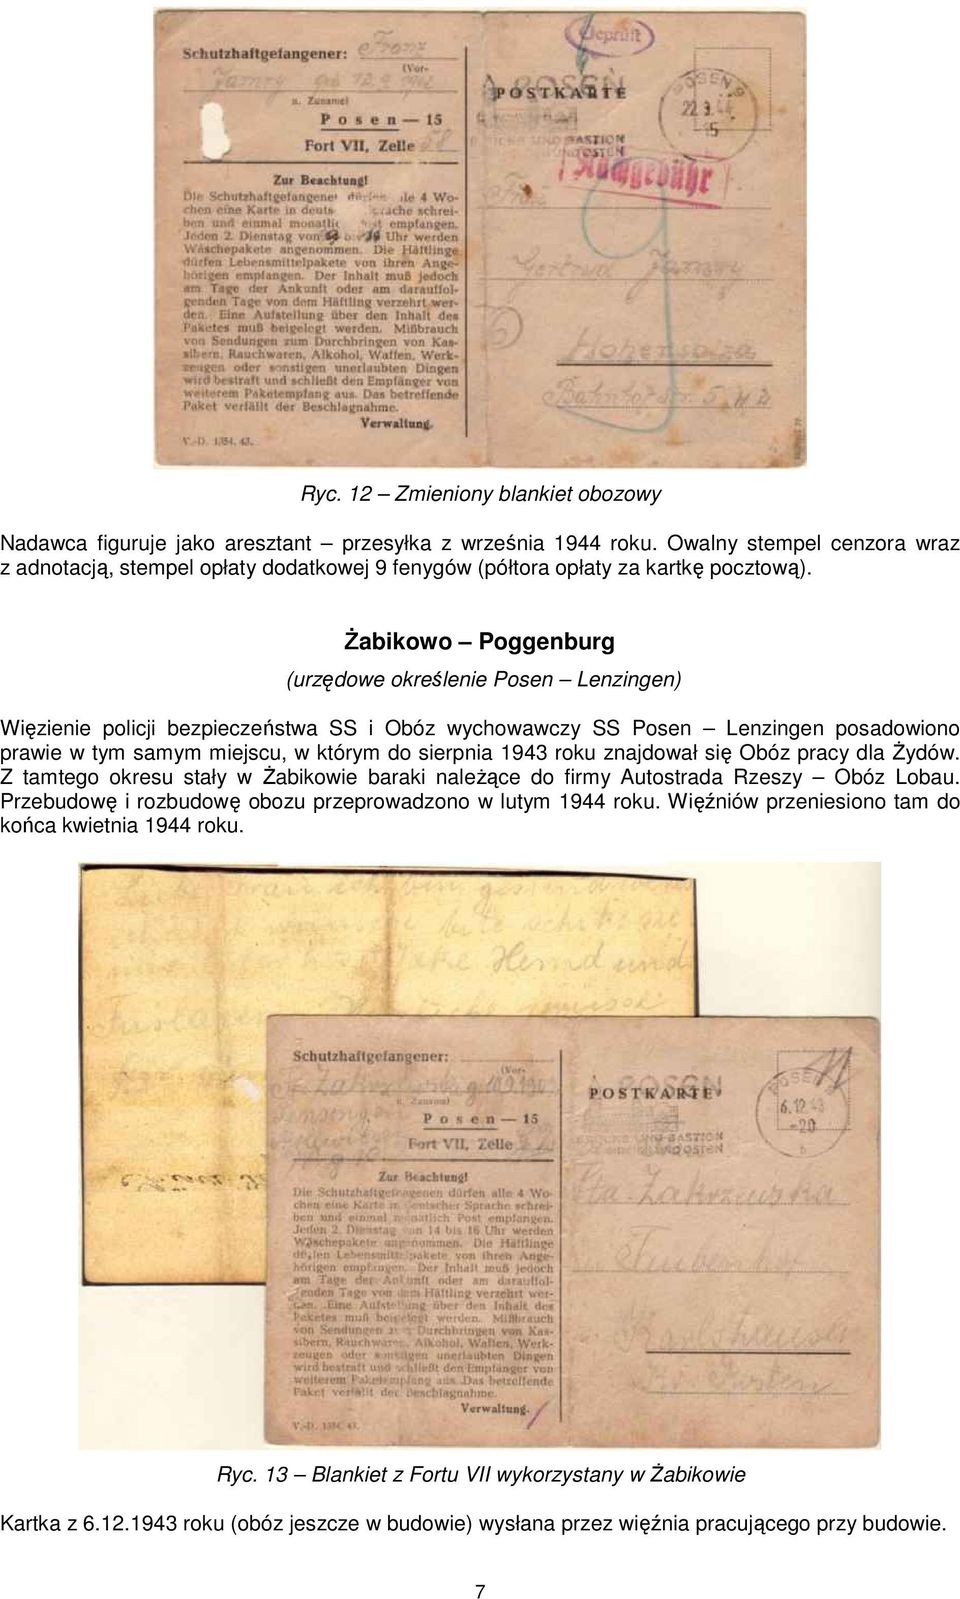 Geprüft
Schutzhaftgefangener: Franz
(Vor-
u. Zuname)
Posen — 15
Fort VII, Zelle
POSTKARTE
POSEN
22.9.44
15
Nachgebühr
Zur Beachtung!
Die Schutzhaftgefangenen alle 4 Wo-
chen eine Karte in schrei-
ben und einmal empfangen.
Jeden 2. Dienstag von Uhr werden
Wäschepakete angenommen. Die Häftlinge
dürfen Lebensmittelpakete von ihren Ange-
hörigen empfangen. Der Inhalt muß jedoch
am Tage der Ankunft oder am darauffol-
genden Tage von dem Häftling verzehrt wer-
den. Eine Aufstellung über den Inhalt des
Paketes muß beigelegt werden. Mißbrauch
von Sendungen zum Durchbringen von Kas-
sibern, Rauchwaren, Alkohol, Waffen, Werk-
zeugen oder sonstigen unerlaubten Dingen
wird bestraft und schließt den Empfänger von
weiterem Paketempfang aus. Das betreffende
Paket verfällt der Beschlagnahme.
Verwaltung.
V.-D. 1354. 43.
Frau
Gertrud Jamry
Hohensalza
Bahnhofstr.
Ryc. 12 – Zmieniony blankiet obozowy
Nadawca figuruje jako aresztant – przesyłka z września 1944 roku. Owalny stempel cenzora wraz
z adnotacją, stempel opłaty dodatkowej 9 fenygów (półtora opłaty za kartkę pocztową).
Żabikowo – Poggenburg
(urzędowe określenie Posen – Lenzingen)
Więzienie policji bezpieczeństwa SS i Obóz wychowawczy SS Posen – Lenzingen posadowiono
prawie w tym samym miejscu, w którym do sierpnia 1943 roku znajdował się Obóz pracy dla Żydów.
Z tamtego okresu stały w Żabikowie baraki należące do firmy Autostrada Rzeszy – Obóz Lobau.
Przebudowę i rozbudowę obozu przeprowadzono w lutym 1944 roku. Więźniów przeniesiono tam do
końca kwietnia 1944 roku.
Hemd und
Schutzhaftgefangener:
(Vor-
u. Zuname)
Posen — 15
Fort VII, Zelle
POSTKARTE
POSEN
6.12.43
-20
b
Zur Beachtung!
Die Schutzhaftgefangenen dürfen alle 4 Wo-
chen eine Karte in deutscher Sprache schrei-
ben und einmal monatlich Post empfangen.
Jeden 2. Dienstag von 14 bis 16 Uhr werden
Wäschepakete angenommen. Die Häftlinge
dürfen Lebensmittelpakete von ihren Ange-
hörigen empfangen. Der Inhalt muß jedoch
am Tage der Ankunft oder am darauffol-
genden Tage von dem Häftling verzehrt wer-
den. Eine Aufstellung über den Inhalt des
Paketes muß beigelegt werden. Mißbrauch
von Sendungen zum Durchbringen von Kas-
sibern, Rauchwaren, Alkohol, Waffen, Werk-
zeugen oder sonstigen unerlaubten Dingen
wird bestraft und schließt den Empfänger von
weiterem Paketempfang aus. Das betreffende
Paket verfällt der Beschlagnahme.
Verwaltung.
V.-D. 1354. 43.
Zakrzewska
Ryc. 13 – Blankiet z Fortu VII wykorzystany w Żabikowie
Kartka z 6.12.1943 roku (obóz jeszcze w budowie) wysłana przez więźnia pracującego przy budowie.
7